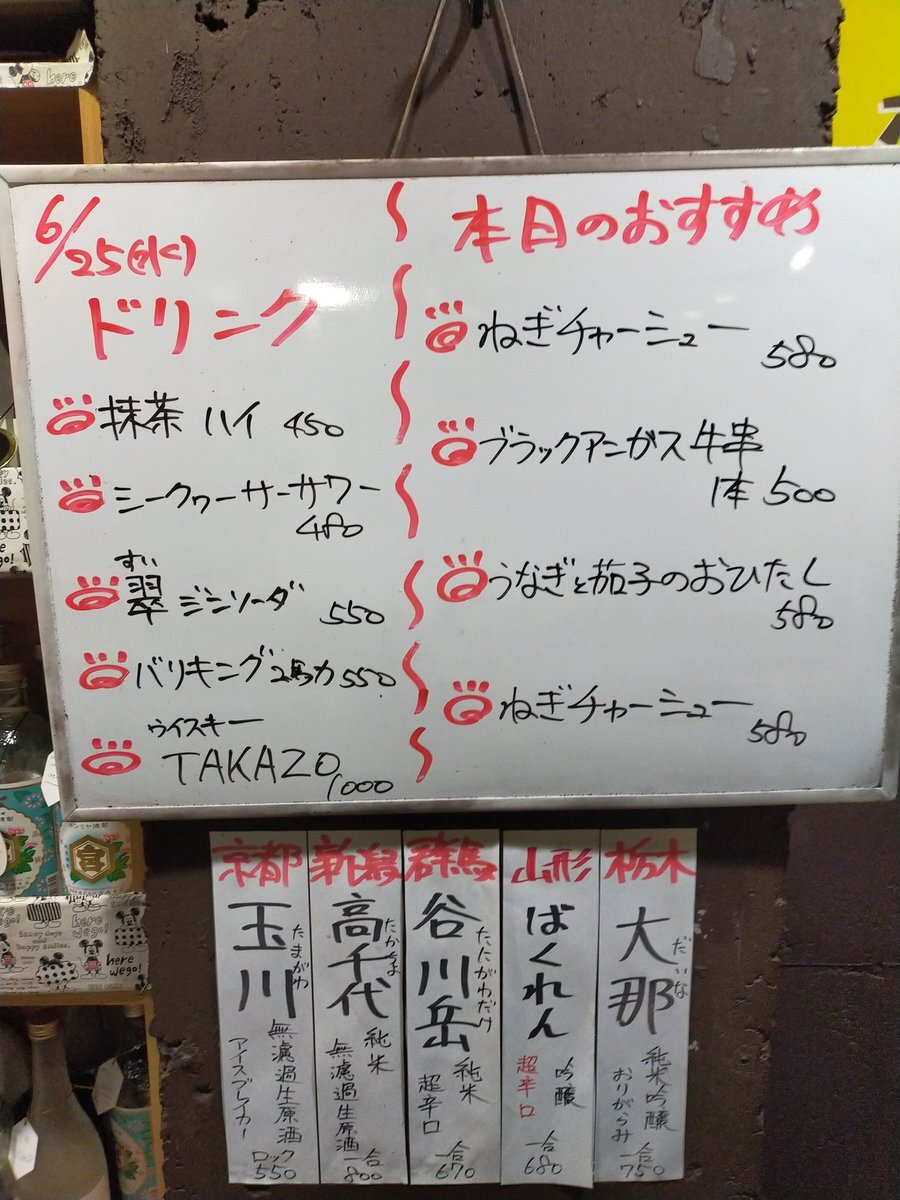 6/25(水)
ドリンク
抹茶ハイ 450
シークヮーサーサワー
480
すい
翠ジンソーダ 550
バリキング2馬力 550
ウイスキー
TAKAZO 1000
本日のおすすめ
ねぎチャーシュー
580
ブラックアンガス牛串
1本 500
うなぎと茄子のおひたし
580
ねぎチャーシュー
580
京都
玉川
たまがわ
無濾過生原酒
アイスブレイカー
ロック
550
新潟
高千代
たかちよ
純米
無濾過生原酒
一合
800
群馬
谷川岳
たにがわだけ
純米
超辛口
一合
670
山形
ばくれん
吟醸
超辛口
一合
680
栃木
大那
だいな
純米吟醸
おりがらみ
一合
750
here
here
wego!